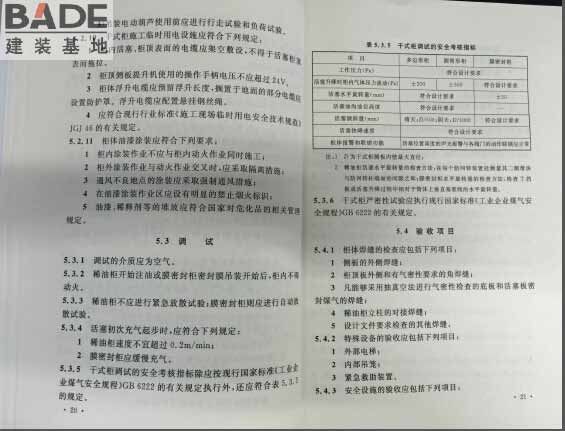 BADE
建装基地
装电动葫芦使用前应进行行走试验和负荷试验。
干式柜施工临时用电设施应符合下列规定:
内活塞、柜顶表面的电缆应架空敷设,不得于活塞柜顶
表面拖拉。
2 柜顶侧板提升机使用的操作手柄电压不应超过24V。
3 柜体浮升电缆应预留浮升长度,搁置于地面的部分电缆应
设置防护罩。浮升电缆应配置悬挂钢丝绳。
4 应符合现行行业标准《施工现场临时用电安全技术规范》
JGJ 46的有关规定。
5.2.11 柜体油漆涂装应符合下列要求:
1 柜内涂装作业不应与柜内动火作业同时施工;
2 柜外涂装作业与动火作业交叉时,应采取隔离措施;
3 通风不良地点的涂装应采取强制通风措施;
4 在油漆涂装作业区应设有明显的禁止烟火标识;
5 油漆、稀释剂等的堆放应符合国家对危化品的相关管理
规定。
5.3 调 试
5.3.1 调试的介质应为空气。
5.3.2 稀油柜开始注油或膜密封柜密封膜吊装开始后,柜内不得
动火。
5.3.3 稀油柜不应进行紧急放散试验;膜密封柜则应进行自动放
散试验。
5.3.4 活塞初次充气起步时,应符合下列规定:
1 稀油柜速度不宜超过0.2m/min;
2 膜密封柜应缓慢充气。
5.3.5 干式柜调试的安全考核指标除应按现行国家标准《工业企
业煤气安全规程》GB 6222的有关规定执行外,还应符合表5.3.5
的规定。
· 20 ·
表5.3.5 干式柜调试的安全考核指标
项 目 多边形柜 圆筒形柜 膜密封柜
工作压力(Pa) 符合设计要求
活塞升降时柜内气体压力波动(Pa) ±200
活塞水平旋转量(mm) 符合设计要求
活塞油沟油位高度 符合设计要求 —
符合设计要求
活塞快降速度 符合设计要求
柜容报警和联锁功能
5.3.6 干式柜严密性试验应执行现行国家标准《工业企业煤气安
全规程》GB 6222的有关规定。
5.4 验收项目
5.4.1 柜体焊缝的检查应包括下列项目:
1 侧板的外侧焊缝;
2 柜顶板外侧和有气密性要求的角焊缝;
3 凡能够采用抽真空法进行气密性检查的底板和活塞板密
封煤气的焊缝;
4 稀油柜立柱的对接焊缝;
5 设计文件要求检查的其他焊缝。
5.4.2 特殊设备的验收应包括下列项目:
1 外部电梯;
2 内部吊笼;
3 紧急救助装置。
5.4.3 安全设施的验收应包括下列项目:
· 21 ·